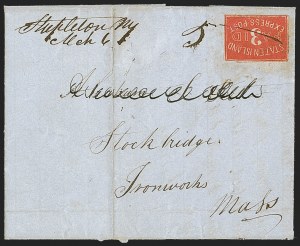 Stapleton NY
Mch 6 5
STATEN ISLAND
3
EXPRESS POST
Stockbridge
Ironworks
Mass